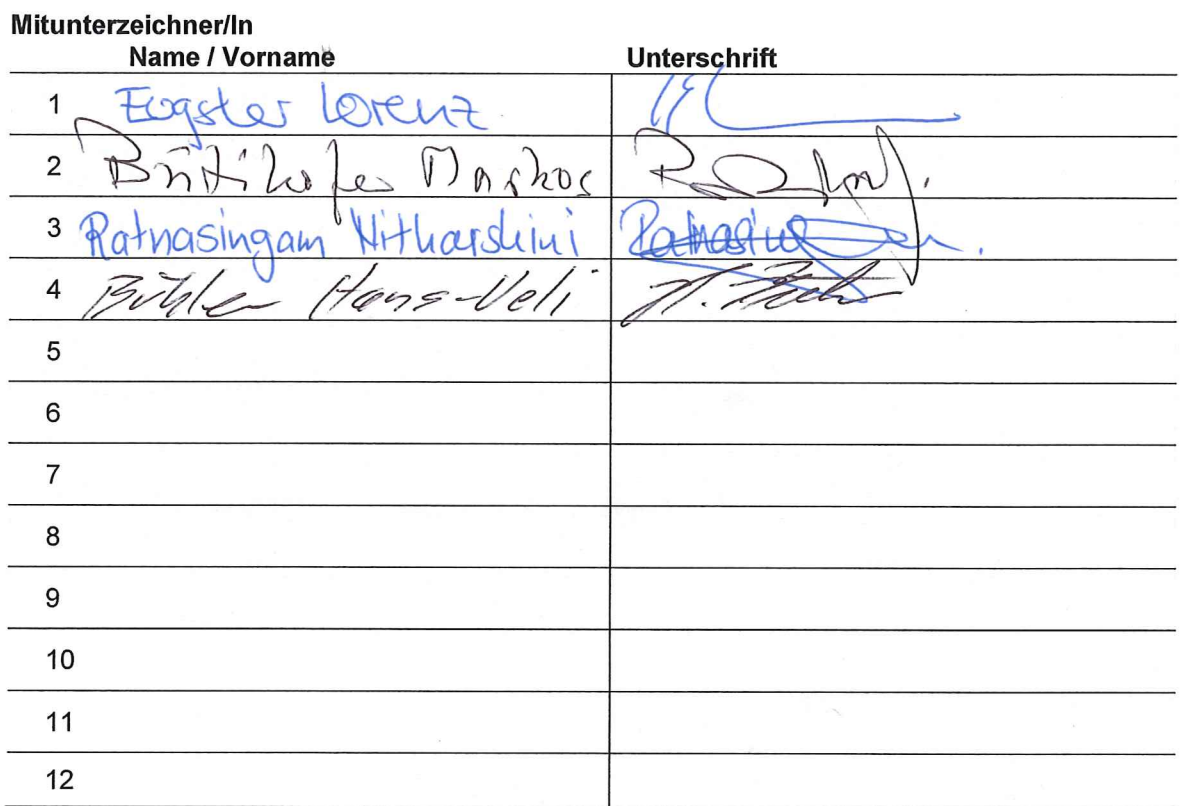 Mitunterzeichner/In
Name / Vorname Unterschrift
1 Eugster Lorenz
2 Bütikofer Markus
3 Ratnasingam Nitharshini
4 Bühler Hans-Ueli
5
6
7
8
9
10
11
12